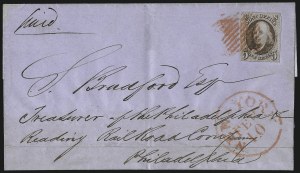 Paid
S. Bradford Esq
Treasurer of the Philadelphia &
Reading Rail Road Company
Philadelphia